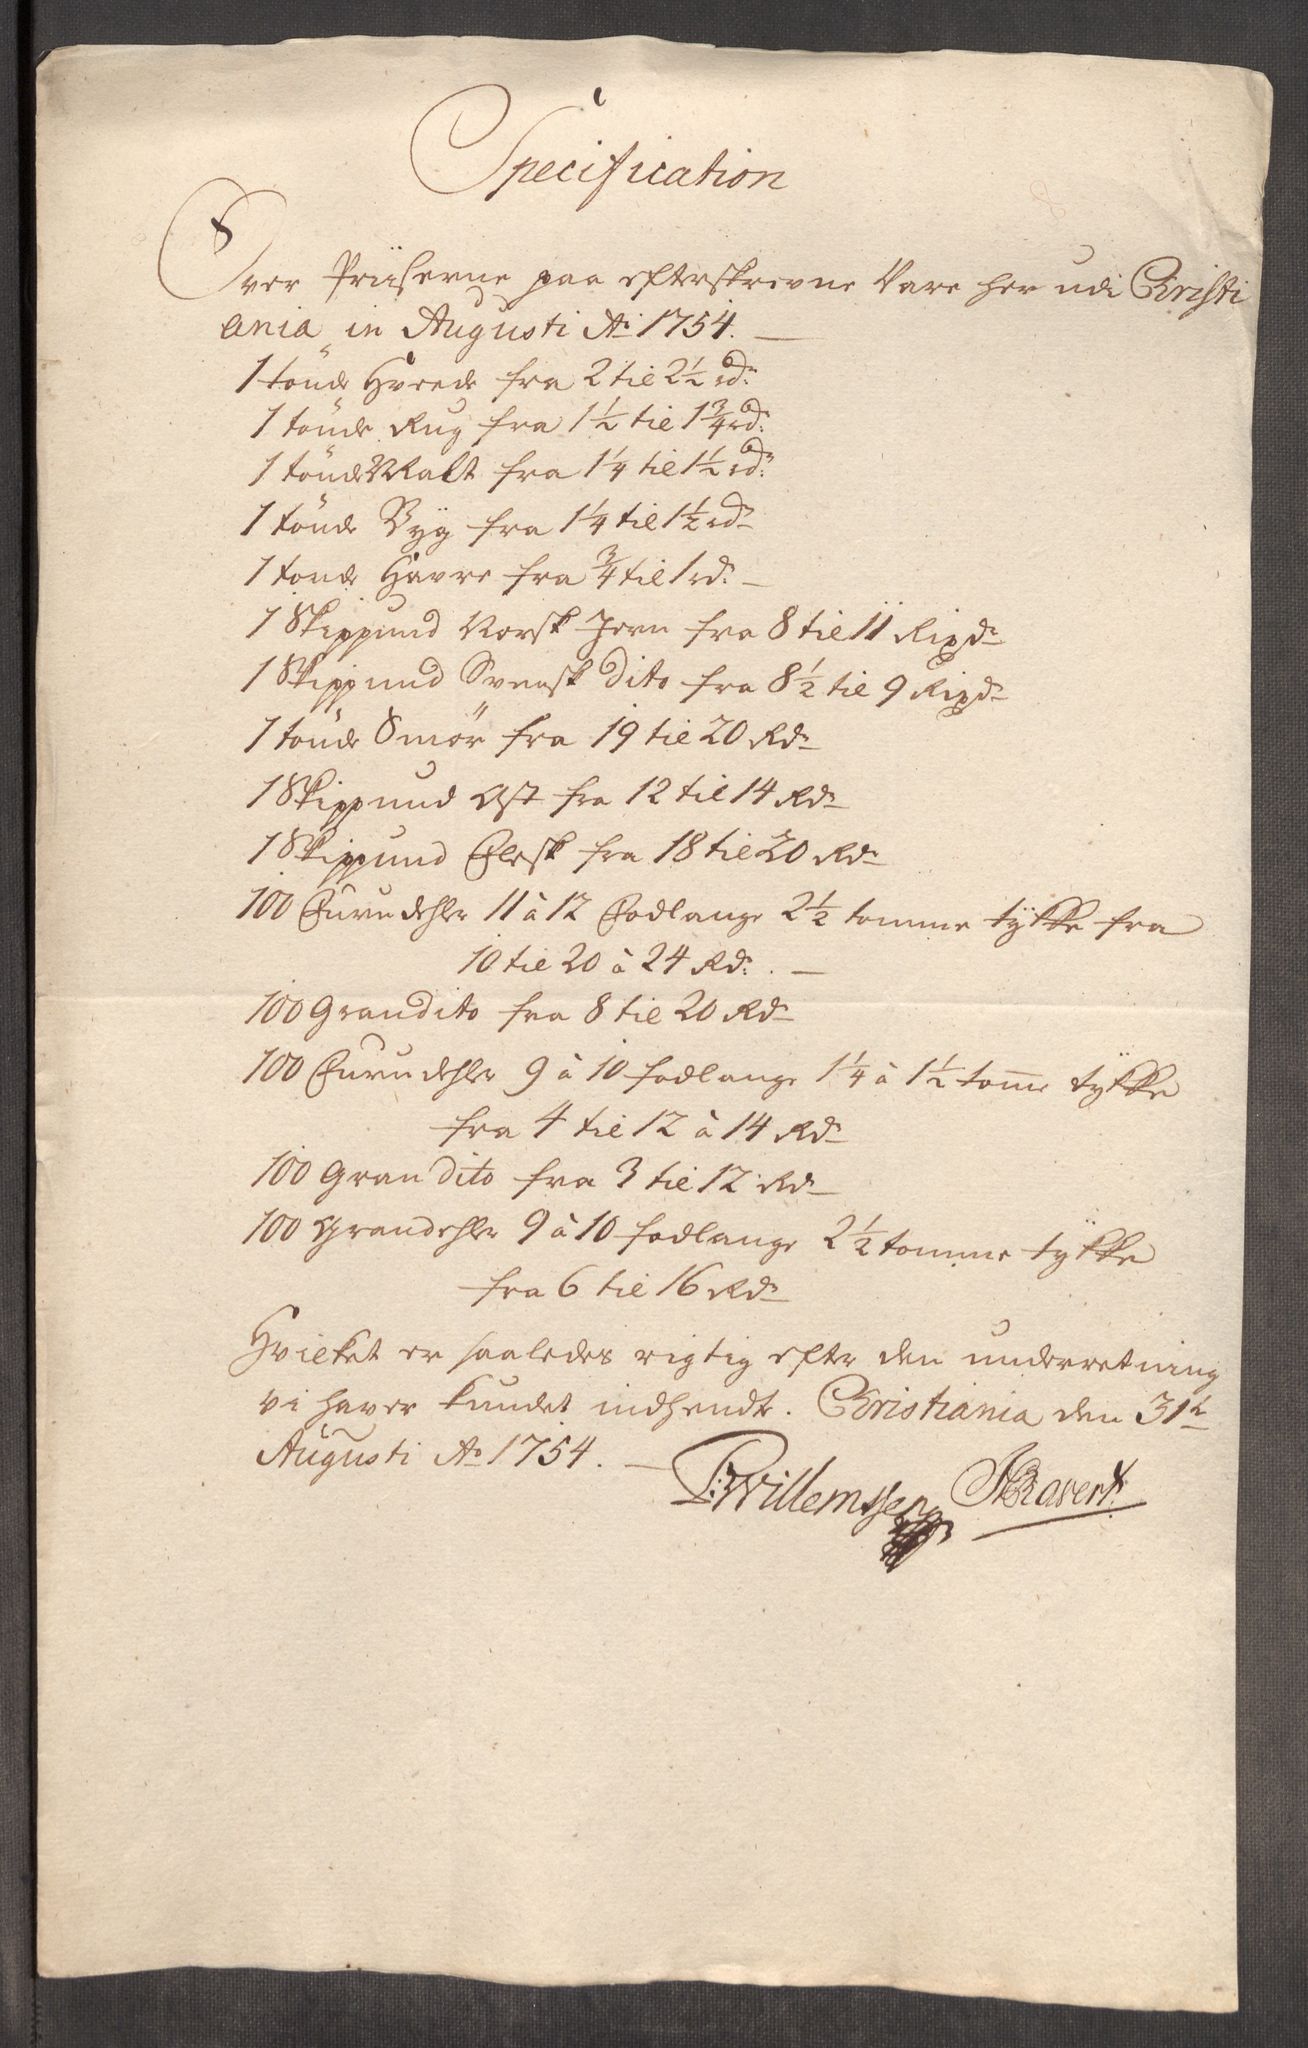 Specification
Over Priiserne paa efterskrevne Vare her udi Christi
ania in Augusti Ao 1754.
1 tönde Hvede fra 2 til 2½ rdr
1 tönde Rug fra 1½ til 1¾ rdr
1 tönde Malt fra 1¼ til 1½ rdr
1 tönde Byg fra 1¼ til 1½ rdr
1 tönde Havre fra ¾ til 1 rdr.
1 Skippund Norsk Jern fra 8 til 11 Rixdr
1 Skippund Svensk dito fra 8½ til 9 Rixdr
1 tönde Smör fra 19 til 20 Rdr
1 Skippund Ost fra 12 til 14 Rdr
1 Skippund Flesk fra 18 til 20 Rdr
100 Furudehler 11 à 12 Fodlange 2½ tomme tÿkke fra
10 til 20 à 24 Rdr.
100 Gran dito fra 8 til 20 Rdr
100 Furudehler 9 à 10 fodlange 1¼ à 1½ tom̅e tÿkke
fra 4 til 12 à 14 Rdr
100 Gran dito fra 3 til 12 Rdr
100 Grandehler 9 à 10 fodlange 2½ tomme tÿkke
fra 6 til 16 Rdr
Hvilket er saaledes rigtig efter den underretning
vi haver kundet indhendte. Christiania den 31te
Augusti Ao 1754.
P: Willemssen Ravert